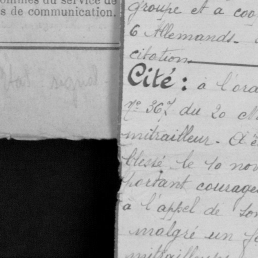 ommes du service de
s de communication.
groupe et a coo
6 Allemands.
citation
Cité : à l'ord
n° 367 du 20
mitrailleur. A
blessé le 10 nov
portant courage
à l'appel de
malgré un
mitrailleuses